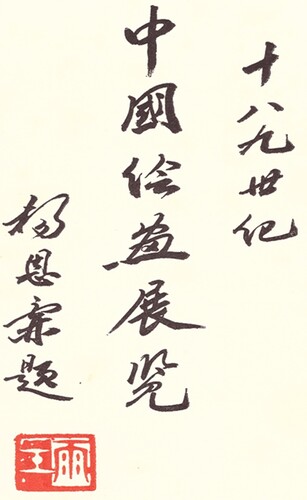 十八九世纪
中國绘畫展览
杨恩题